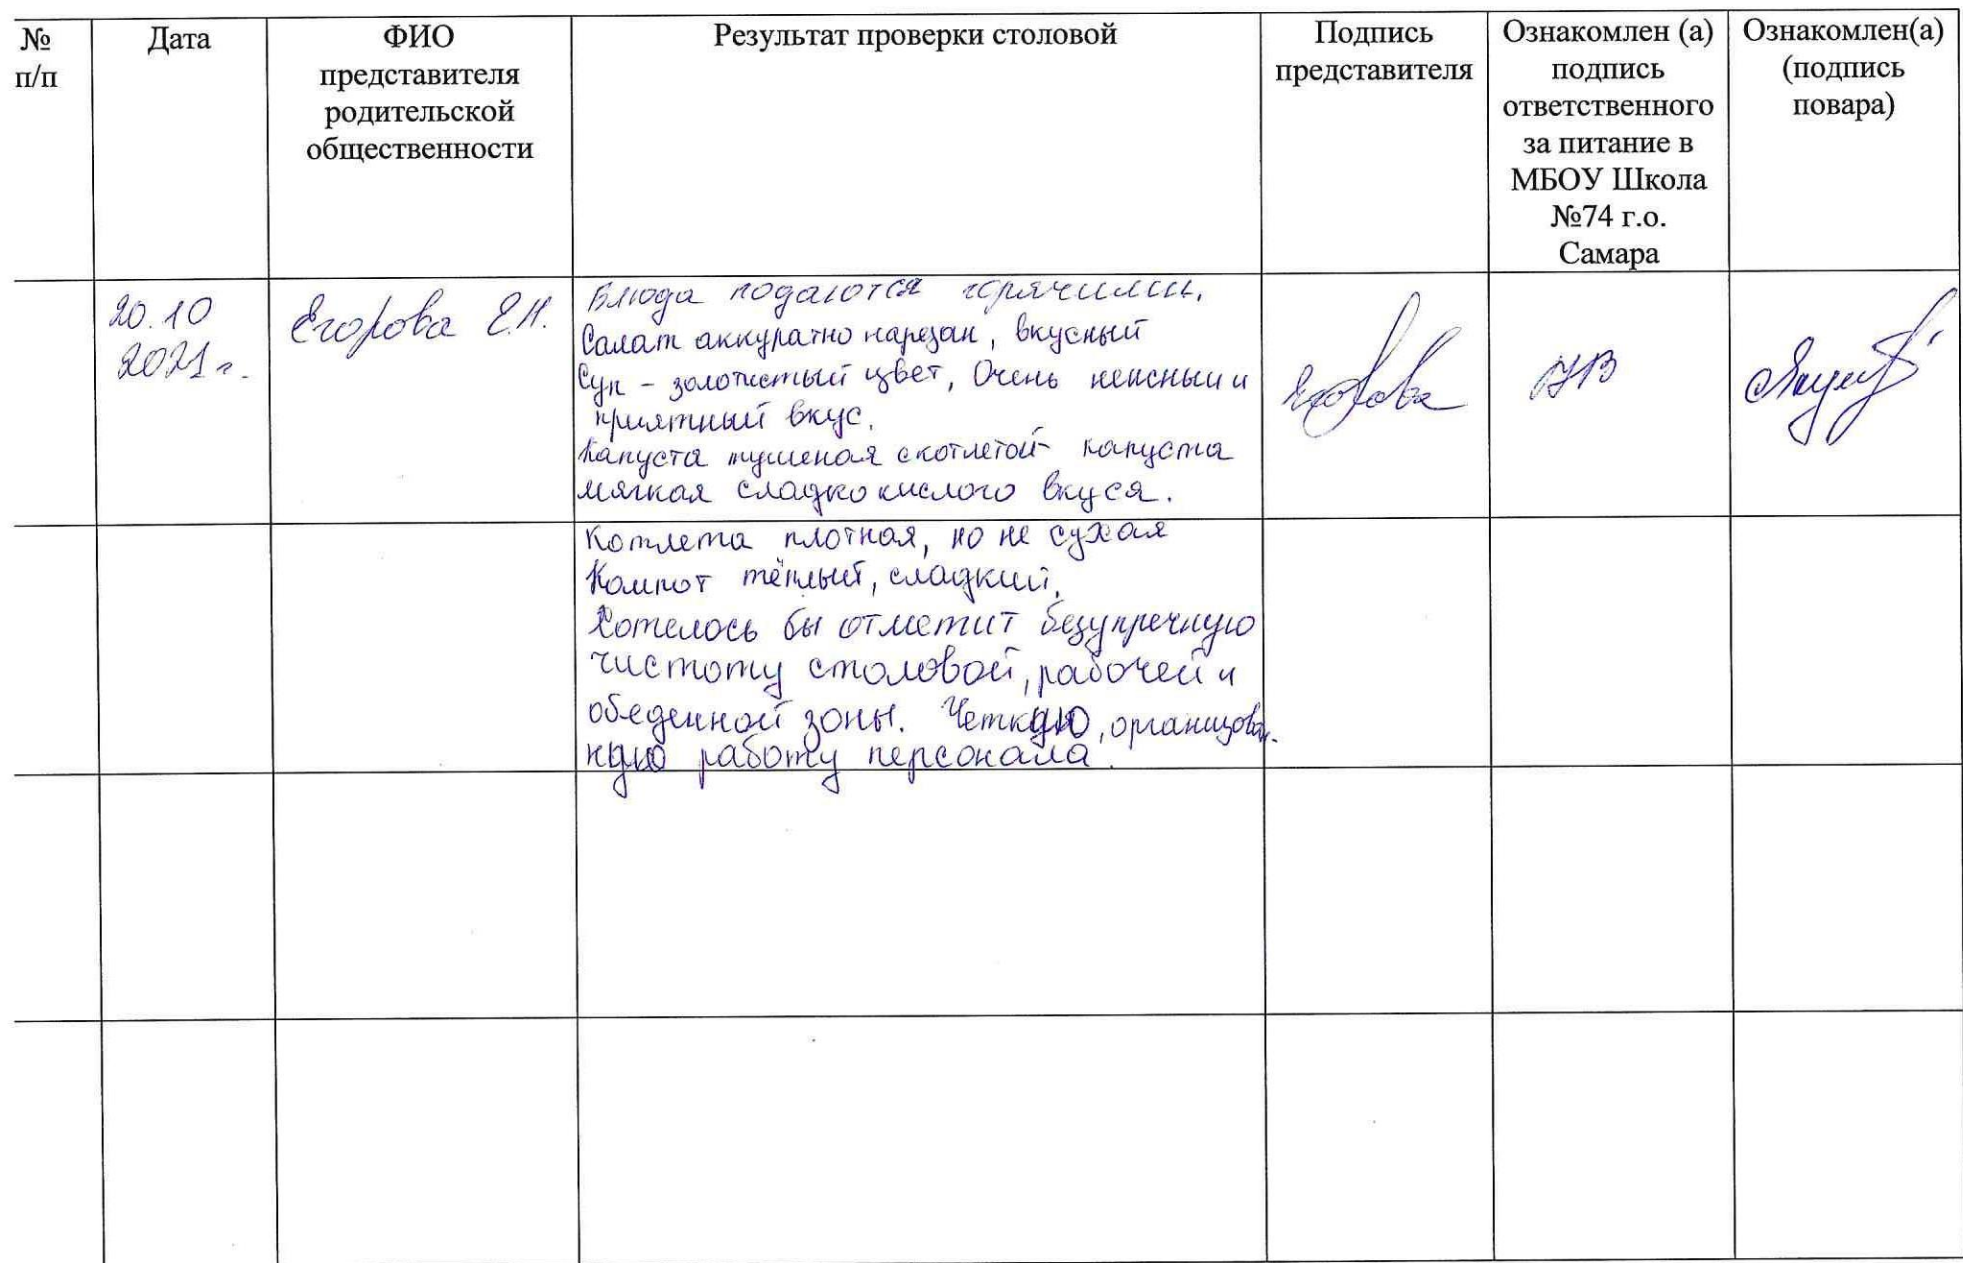 № п/п
Дата
ФИО
представителя
родительской
общественности
Результат проверки столовой
Подпись
представителя
Ознакомлен (а)
подпись
ответственного
за питание в
МБОУ Школа
№74 г.о.
Самара
Ознакомлен(а)
(подпись
повара)
20.10
2021 г.
Егорова Е.Н.
Блюда подаются горячими.
Салат аккуратно нарезан, вкусный
Суп - золотистый цвет, Очень нежный и
приятный вкус.
Капуста тушеная с котлетой - капуста
мягкая сладко кислого вкуся.
Егорова
Котлета плотная, но не сухая
Компот тёплый, сладкий.
Хотелось бы отметит безупречную
чистоту столовой, рабочей и
обеденной зоны. Четкую, организован.
ную работу персонала.